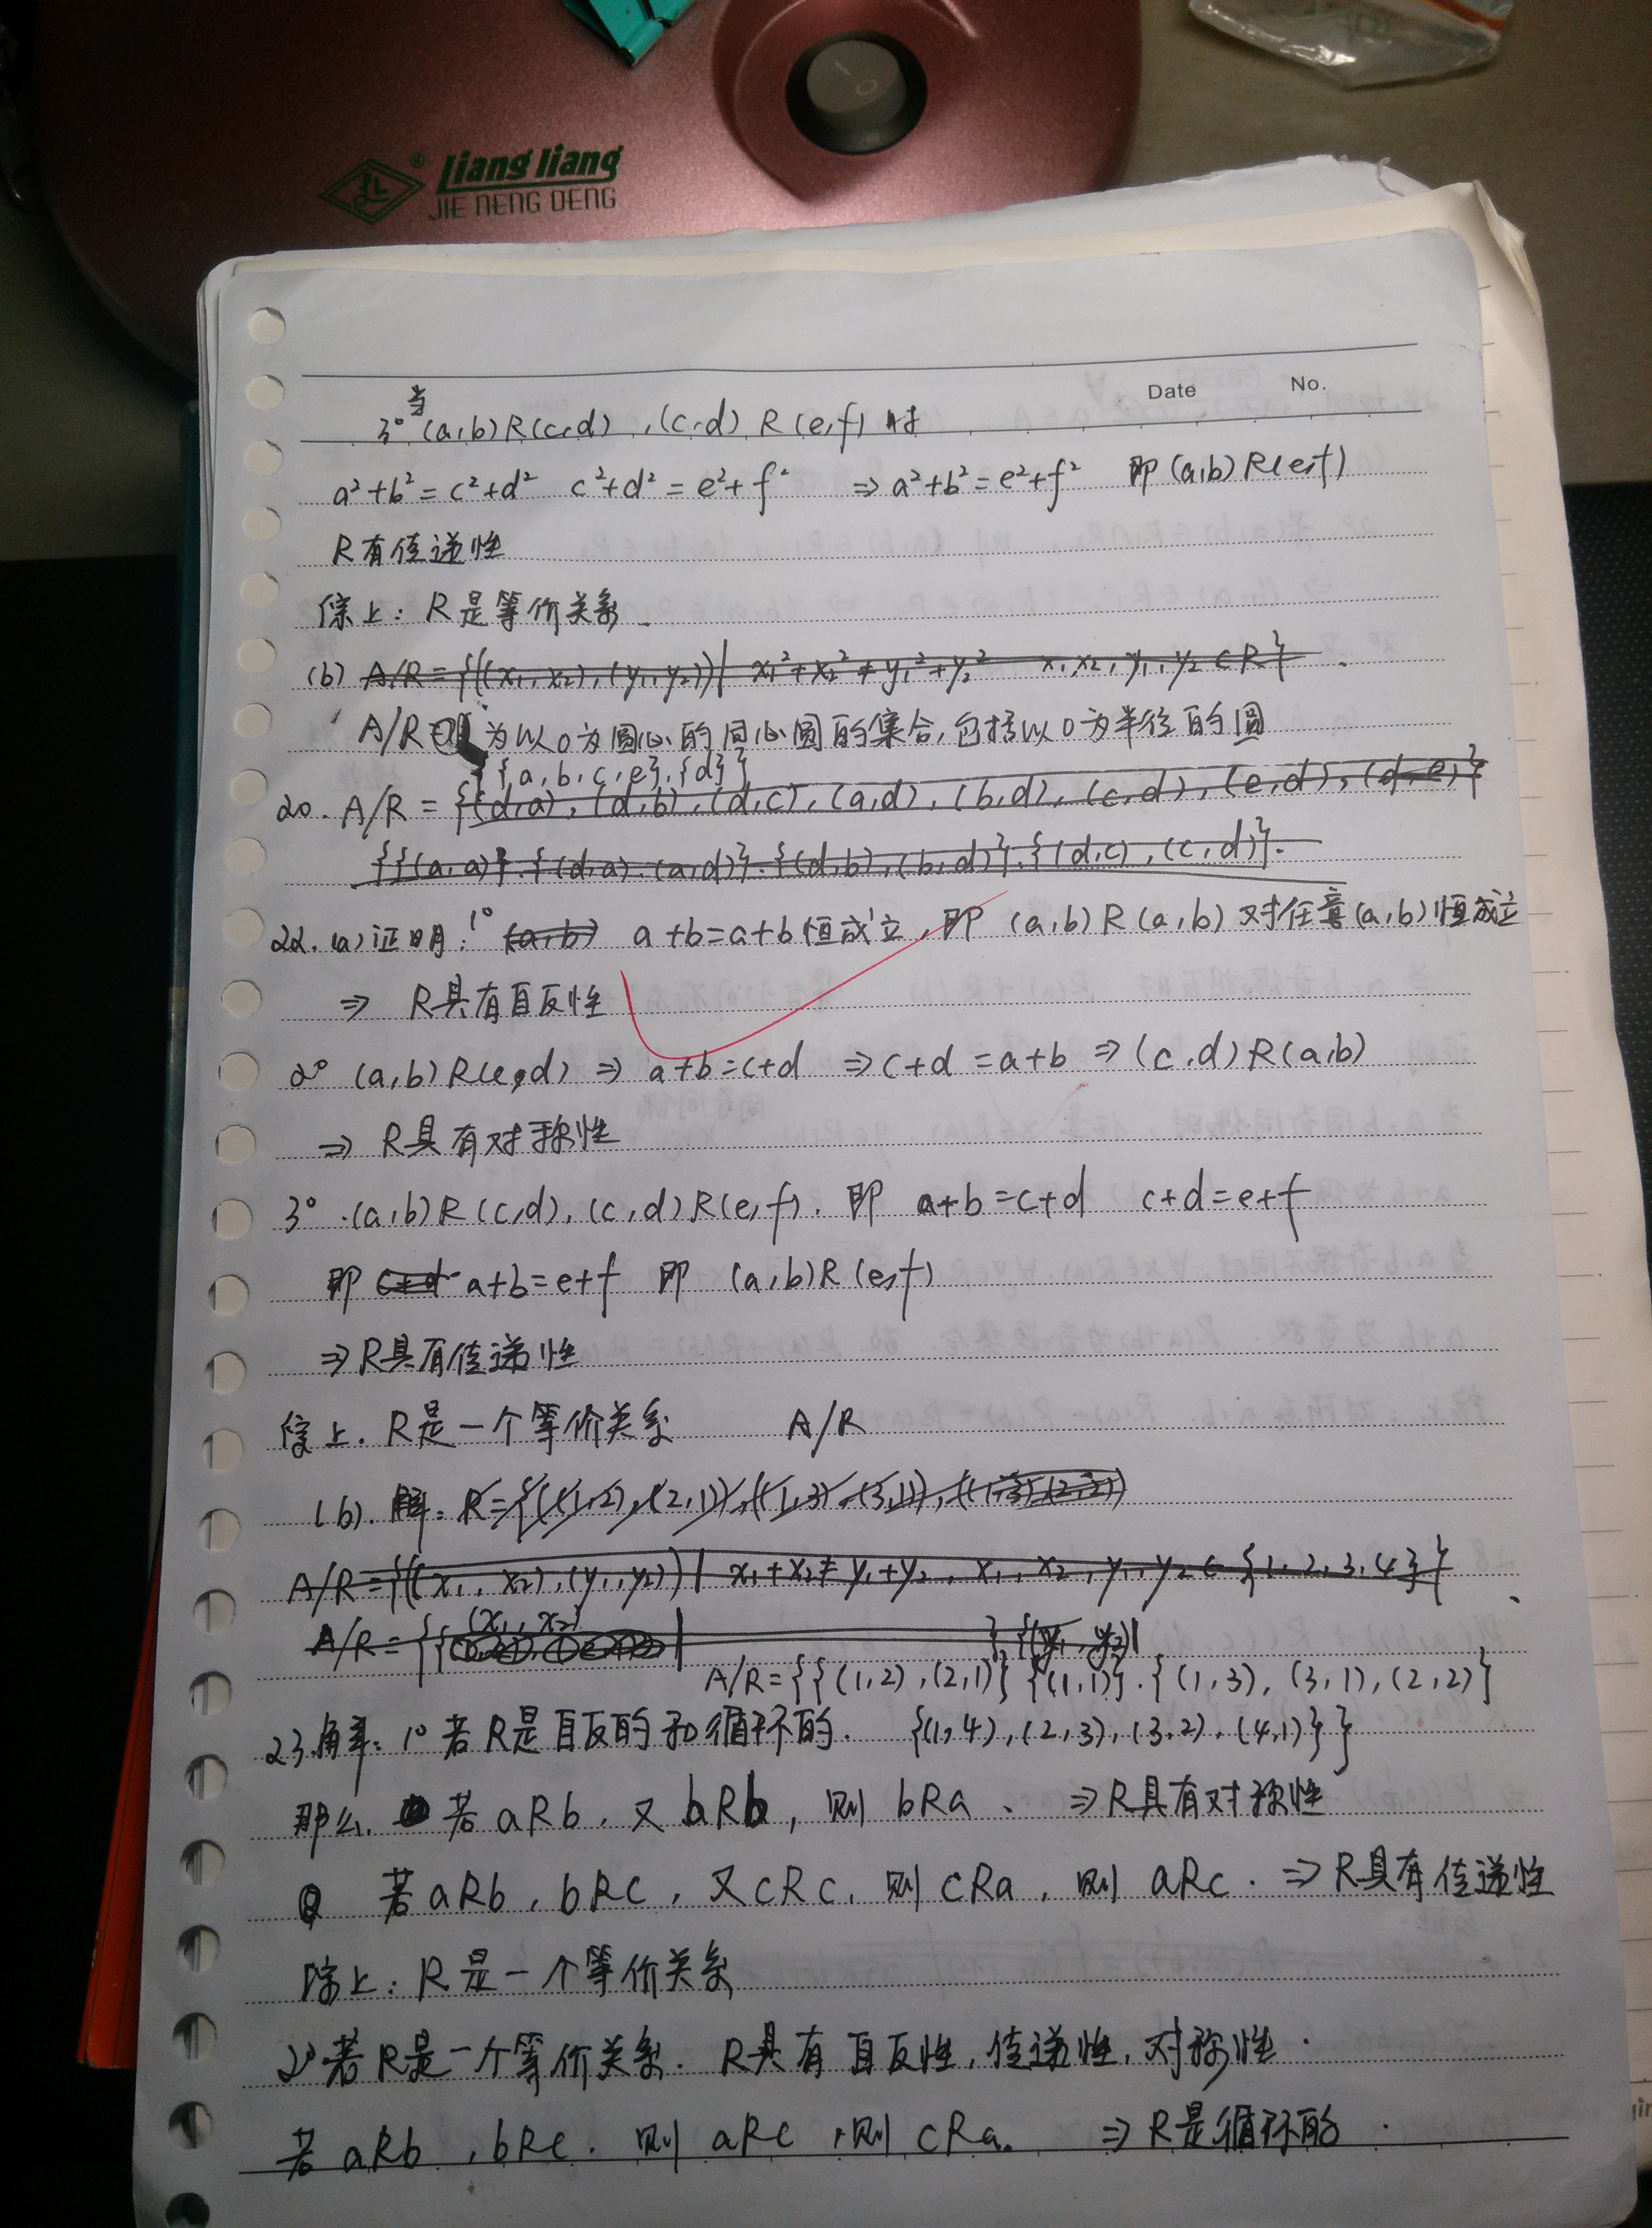 Liang liang
JIE NENG DENG
Date No.
3° 当(a,b)R(c,d),(c,d)R(e,f)时
a²+b²=c²+d² c²+d²=e²+f² ⇒a²+b²=e²+f² 即(a,b)R(e,f)
R有传递性
综上:R是等价关系.
(b) A/R={((x₁,x₂),(y₁,y₂))| x₁²+x₂²≠y₁²+y₂² x₁,x₂,y₁,y₂∈R}
A/R 为以0为圆心的同心圆的集合,包括以0为半径的圆
{{a,b,c,e},{d}}
20. A/R={(d,a),(d,b),(d,c),(a,d),(b,d),(c,d),(e,d),(d,e)}
{{(a,a)}.{(d,a).(a,d)}.{(d,b),(b,d)}.{(d,c),(c,d)}.
22.(a)证明:1° (a,b) a+b=a+b恒成立,即(a,b)R(a,b)对任意(a,b)恒成立
⇒ R具有自反性
2° (a,b)R(c,d)⇒ a+b=c+d ⇒c+d=a+b ⇒(c,d)R(a,b)
⇒ R具有对称性
3° .(a,b)R(c,d),(c,d)R(e,f).即 a+b=c+d c+d=e+f
即 c+d a+b=e+f 即 (a,b)R(e,f)
⇒R具有传递性
综上.R是一个等价关系 A/R
(b).解:R={((1,2),(2,1)),((1,3),(3,1)),((1,3),(2,2))
A/R={((x₁,x₂),(y₁,y₂))| x₁+x₂≠y₁+y₂,x₁,x₂,y₁,y₂∈{1,2,3,4}}
A/R={{(x₁,x₂)| },{(y₁,y₂)|
A/R={{(1,2),(2,1)}{(1,1)}.{(1,3),(3,1),(2,2)}
23.解:1°若R是自反的和循环的. {(1,4),(2,3),(3,2),(4,1)}}
那么. 若aRb,又bRb,则bRa、⇒R具有对称性
若aRb,bRc,又cRc,则cRa,则aRc.⇒R具有传递性
综上:R是一个等价关系
2°若R是一个等价关系.R具有自反性,传递性,对称性.
若aRb,bRc.则aRc,则cRa. ⇒R是循环的.